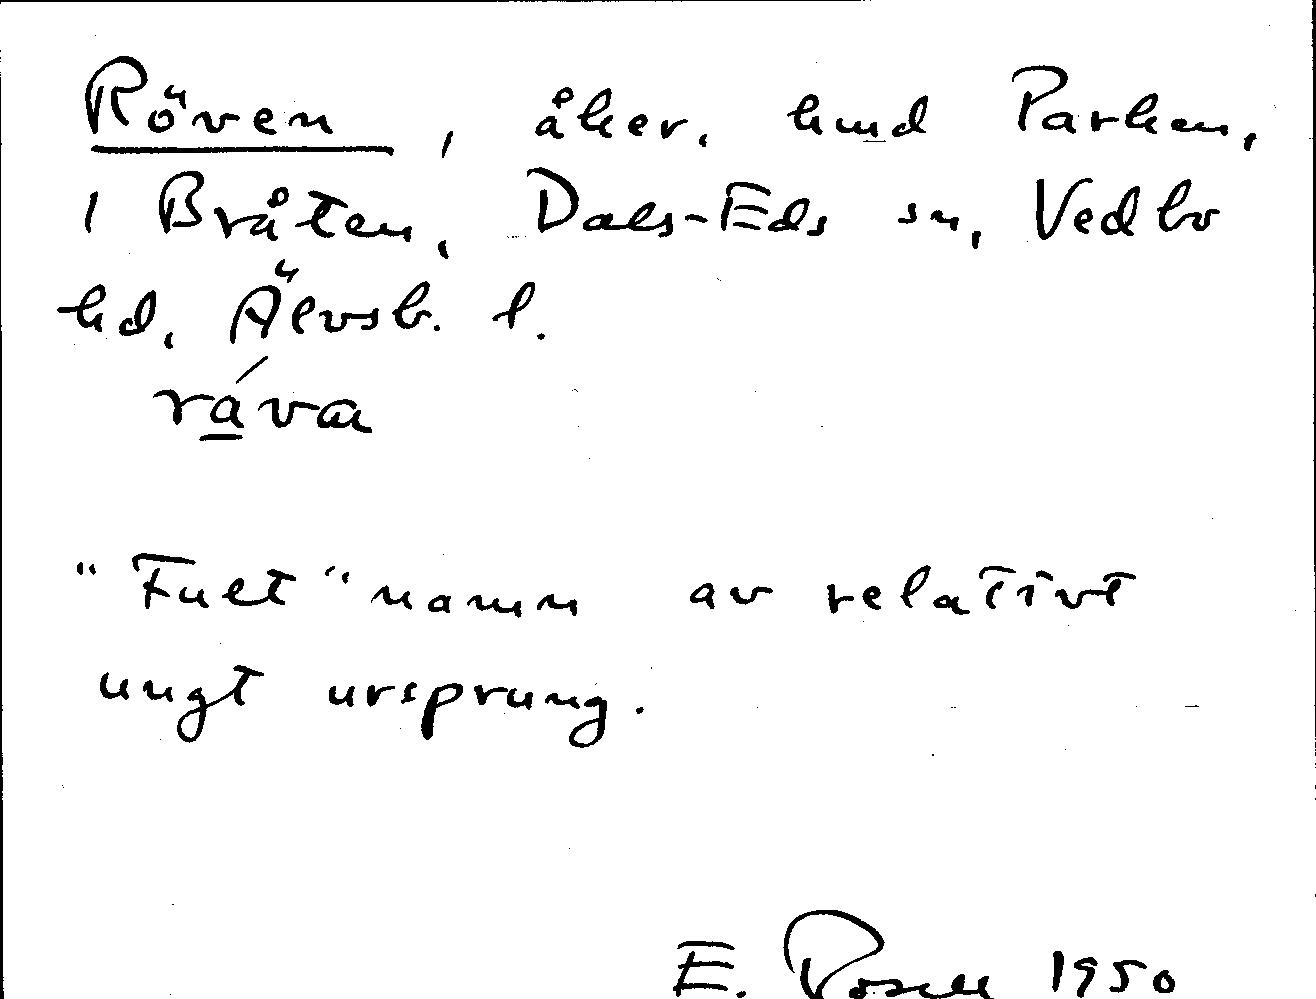 Röven, åker, hmd Parken,
1 Bråten, Dals-Eds sn, Vedbo
hd, Älvsb. l.
rá̱va
"Fult" namn av relativt
ungt ursprung.
E. Rosell 1950